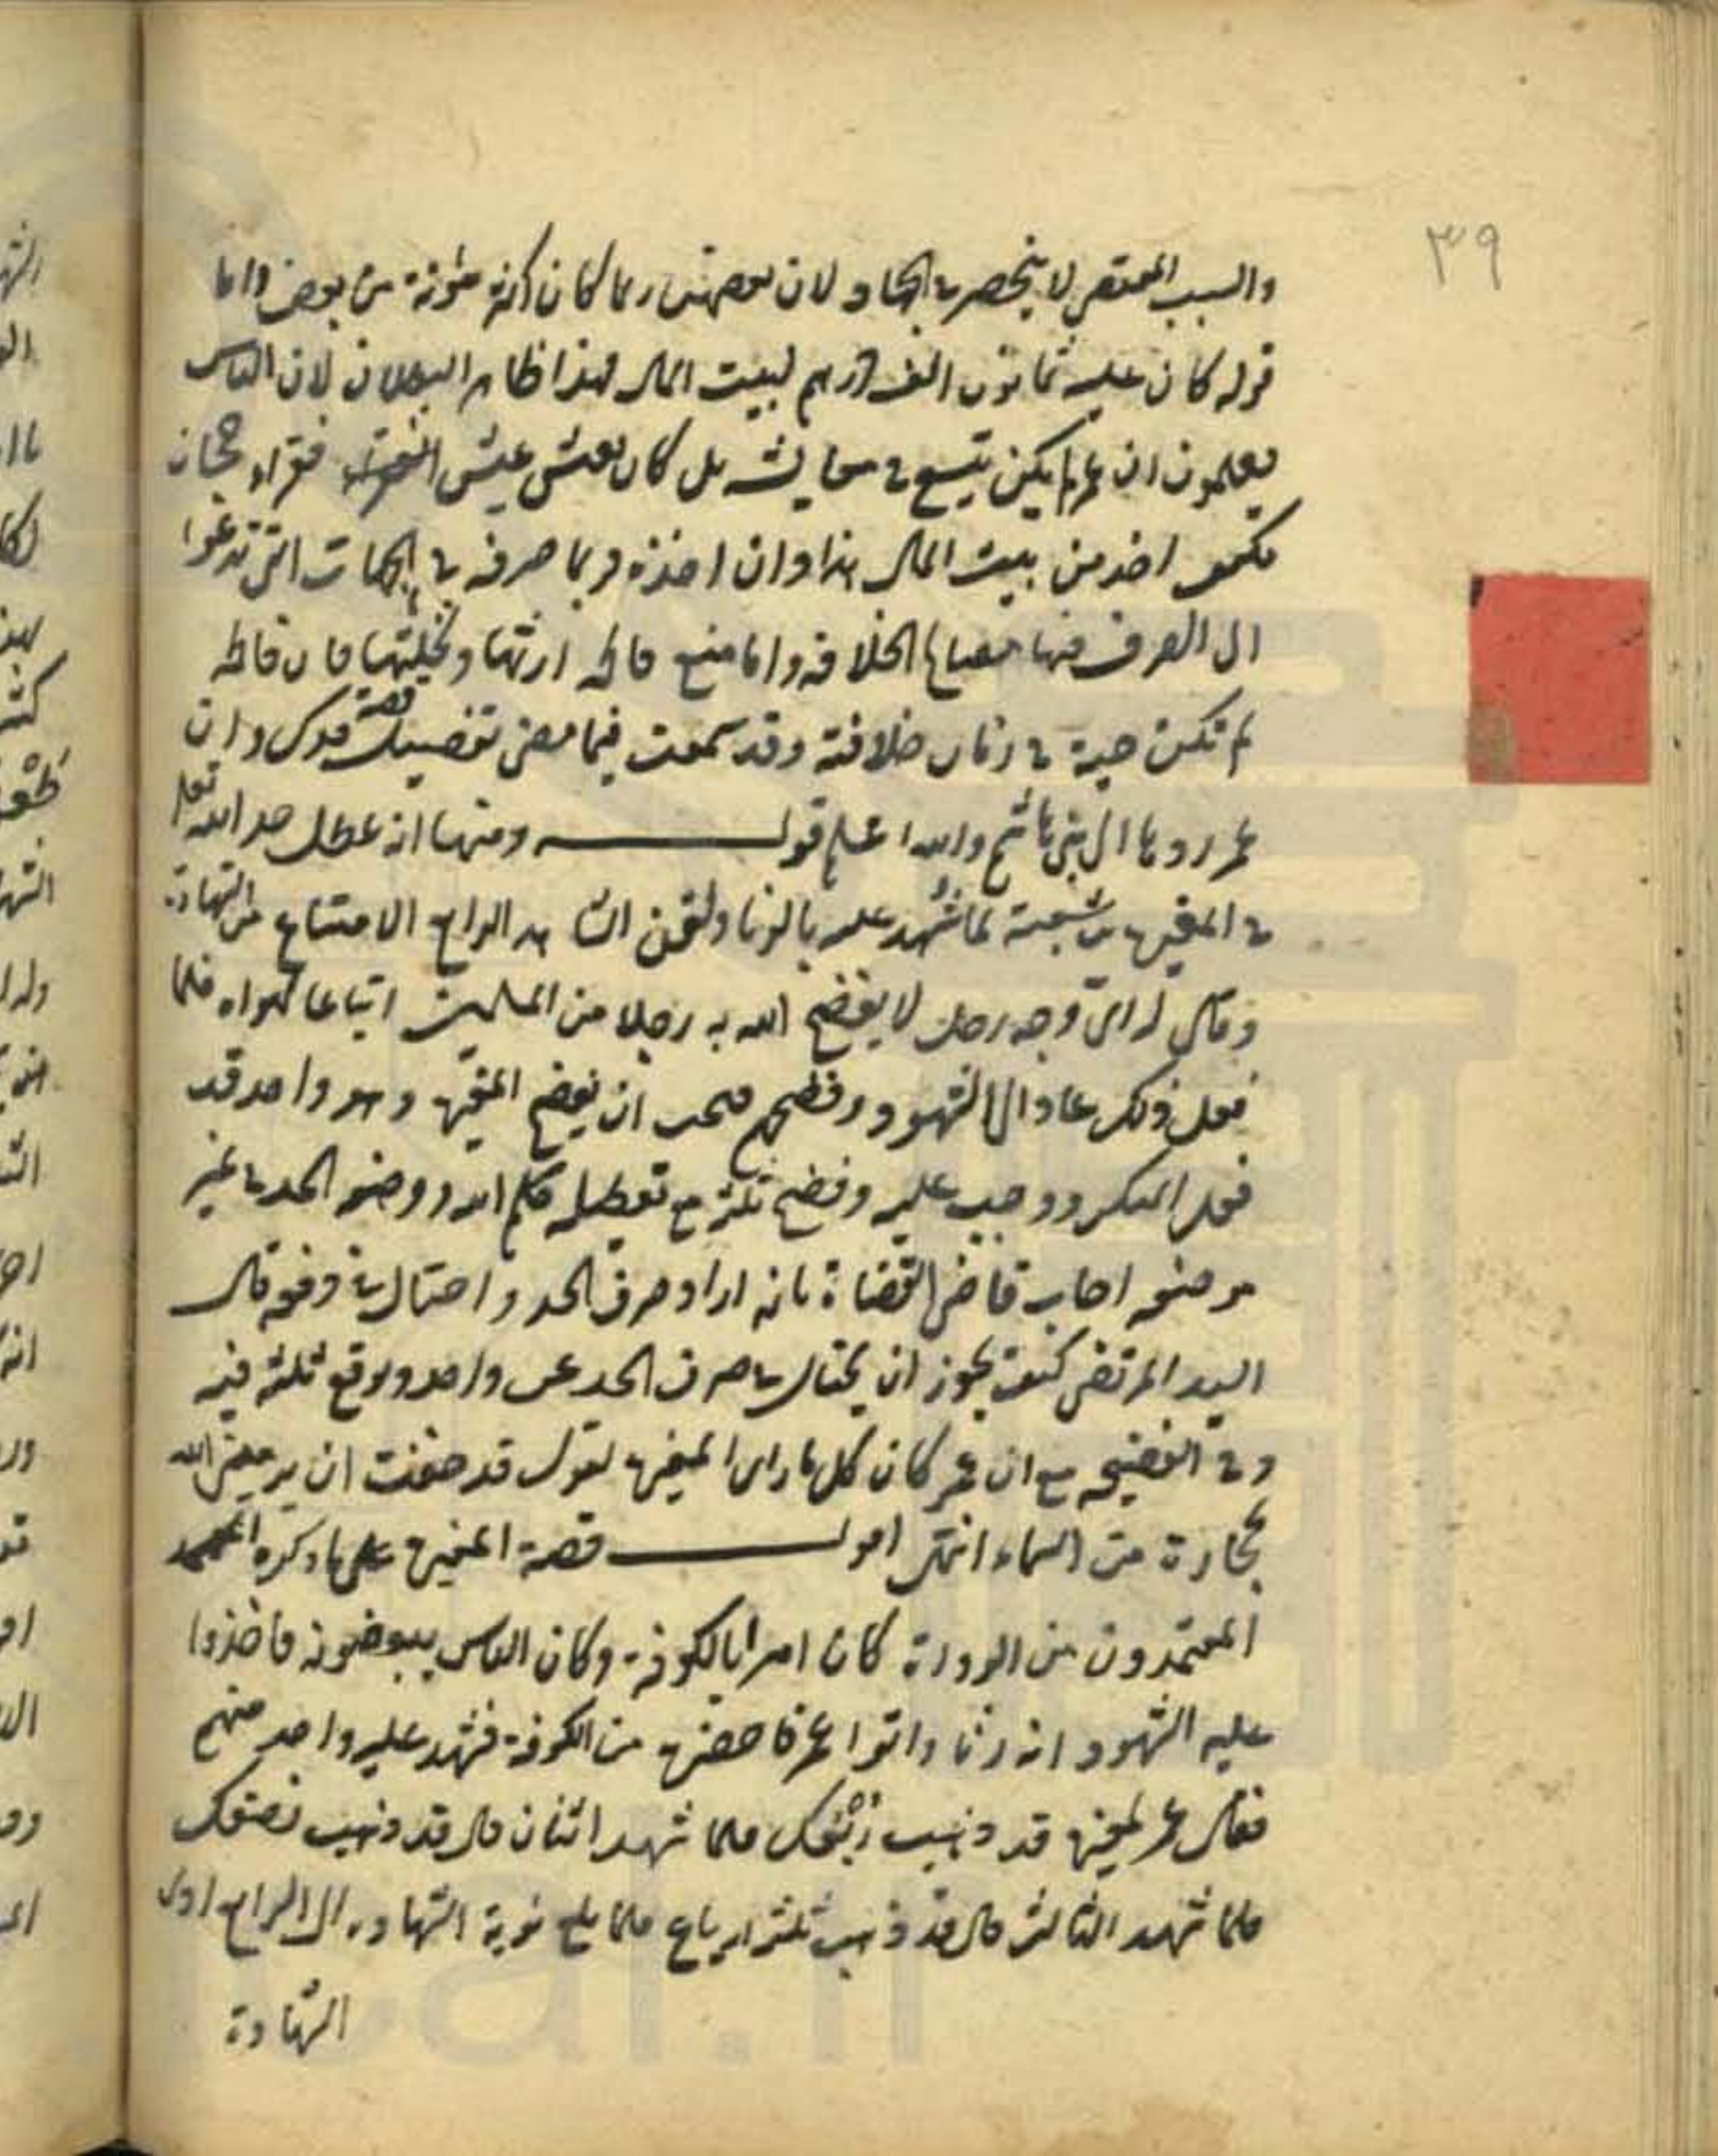 ٣٩
والسبب المقتضي لا ينحصر في الجهاد لان بعضهن ربما كان اكثر مؤنة من بعض واما
قوله كان عليه ثمانون الف درهم لبيت المال فهذا ظاهر البطلان لان الناس
يعلمون ان عمر لم يكن يتسع في معايشه بل كان يعيش عيش فقراء
اخذ من بيت المال هذا وان اخذه فربما صرفه في الجهات التي تدعوا
الى الصرف فيها مصالح الخلافة واما منع فاطمة ارثها ونحلتها فان فاطمة
لم تكن حية في زمان خلافته وقد سمعت فيما مضى تفصيل قصة فدك وان
عمر ردها الى بني هاشم والله اعلم قوله ومنها انه عطل حد الله تعالى
في المغيرة بن شعبة لما شهد عليه بالزنا ولقن الشاهد الرابع الامتناع من الشهادة
وقال له ارى وجه رجل لا يفضح الله به رجلا من المسلمين اتباعا لهواه فلما
فعل ذلك عاد الى الشهود وفضحهم فتجنب ان يفضح المغيرة وهو واحد قد
فعل المنكر ووجب عليه وفضح ثلثة مع تعطيله حكم الله ووضعه الحد في غير
موضعه اجاب قاضي القضاة بانه اراد صرف الحد واحتال في دفعه قال
السيد المرتضى كيف يجوز ان يحتال في صرف الحد عن واحد ويوقع ثلثة فيه
وفي الفضيحه مع ان عمر كان كل ما راى المغيرة يقول قد خفت ان يرميني الله
بحجارة من السماء انتهى اقول قصة المغيرة على ما ذكره
المعتمدون من الرواة كان اميرا بالكوفة وكان الناس يبغضونه فاخذوا
عليه الشهود انه زنا واتوا عمر فاحضره من الكوفة فشهد عليه واحد منهم
فقال عمر لمغيرة قد ذهب ربعك فلما شهد اثنان قال قد ذهب نصفك
فلما شهد الثالث قال قد ذهب ثلثة ارباع فلما بلغ نوبة الشهادة الى الرابع
الشهادة